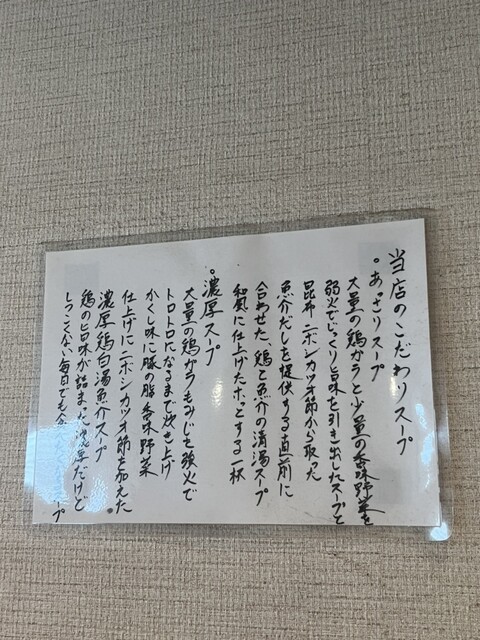 当店のこだわりスープ
。あっさりスープ
大量の鶏ガラと少量の香味野菜を
弱火でじっくり旨味を引き出したスープと
昆布ニボシカツオ節から取った
魚介だしを提供する直前に
合わせた、鶏と魚介の清湯スープ
和風に仕上げたホッとする一杯
。濃厚スープ
大量の鶏ガラもみじを強火で
トロトロになるまで炊き上げ
かくし味に豚の脂香味野菜
仕上げにニボシカツオ節を加えた
濃厚鶏白湯魚介スープ。
鶏の旨味が詰まった濃厚だけど
しつこくない毎日でも食べスープ